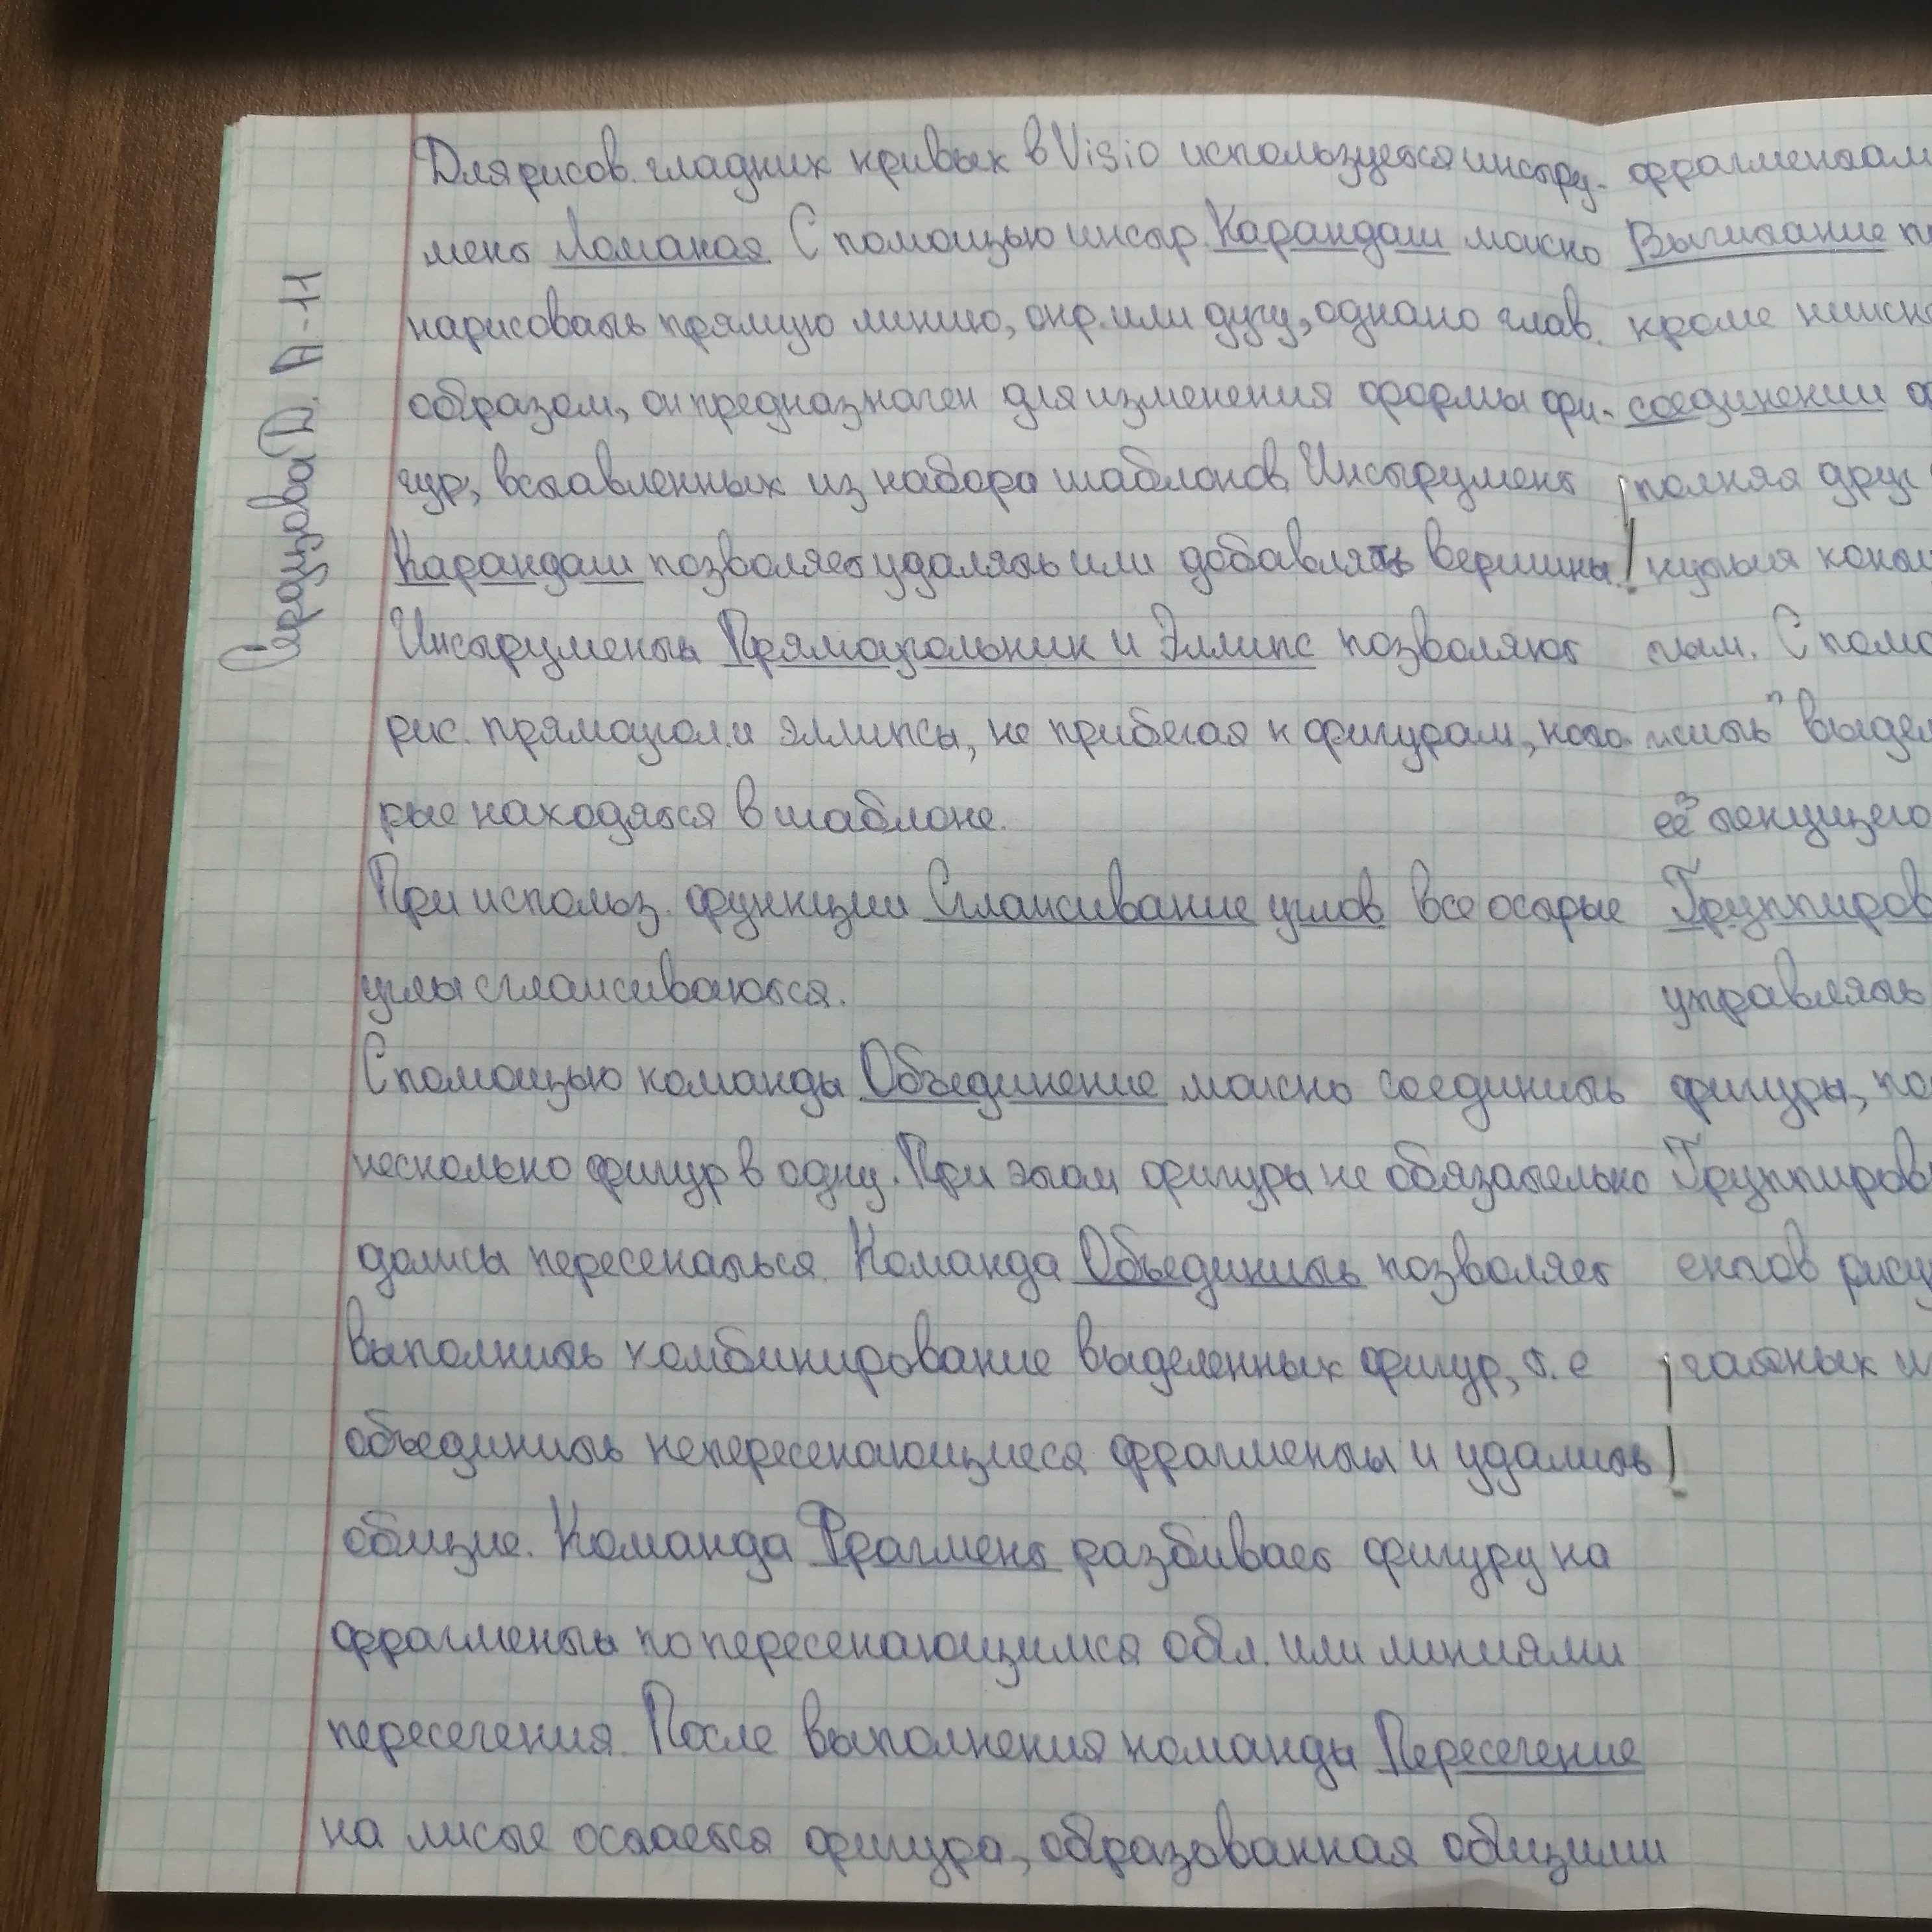 Для рисов. гладких кривых в Visio используется инстру-
мент Ломаная. С помощью инстр. Карандаш можно
нарисовать прямую линию, окр. или дугу, однако глав.
образом, он предназначен для изменения формы фи-
гур, вставленных из набора шаблонов. Инструмент
Карандаш позволяет удалять или добавлять вершины.
Инструменты Прямоугольник и Эллипс позволяют
рис. прямоугол. и эллипсы, не прибегая к фигурам, кото
рые находятся в шаблоне.
При использ. функции Сглаживание углов все острые
углы сглаживаются.
С помощью команды Объединение можно соединить
несколько фигур в одну. При этом фигуры не обязательно
должы пересекаться. Команда Объединить позволяет
выполнить комбинирование выделенных фигур, т. е
объединить непересекающиеся фрагменты и удалить
общие. Команда Фрагмент разбивает фигуру на
фрагменты по пересекающимся обл. или линиями
пересечения. После выполнения команды Пересечение
на листе остается фигура, образованная общими
Сиразизова D. А-11
фрагментам
Вычитание
кроме
соединении
полняя друг
тым. С помо
выдел
её текущего
Группиров
управлять
фигуры, по
Группиров
ентов рису